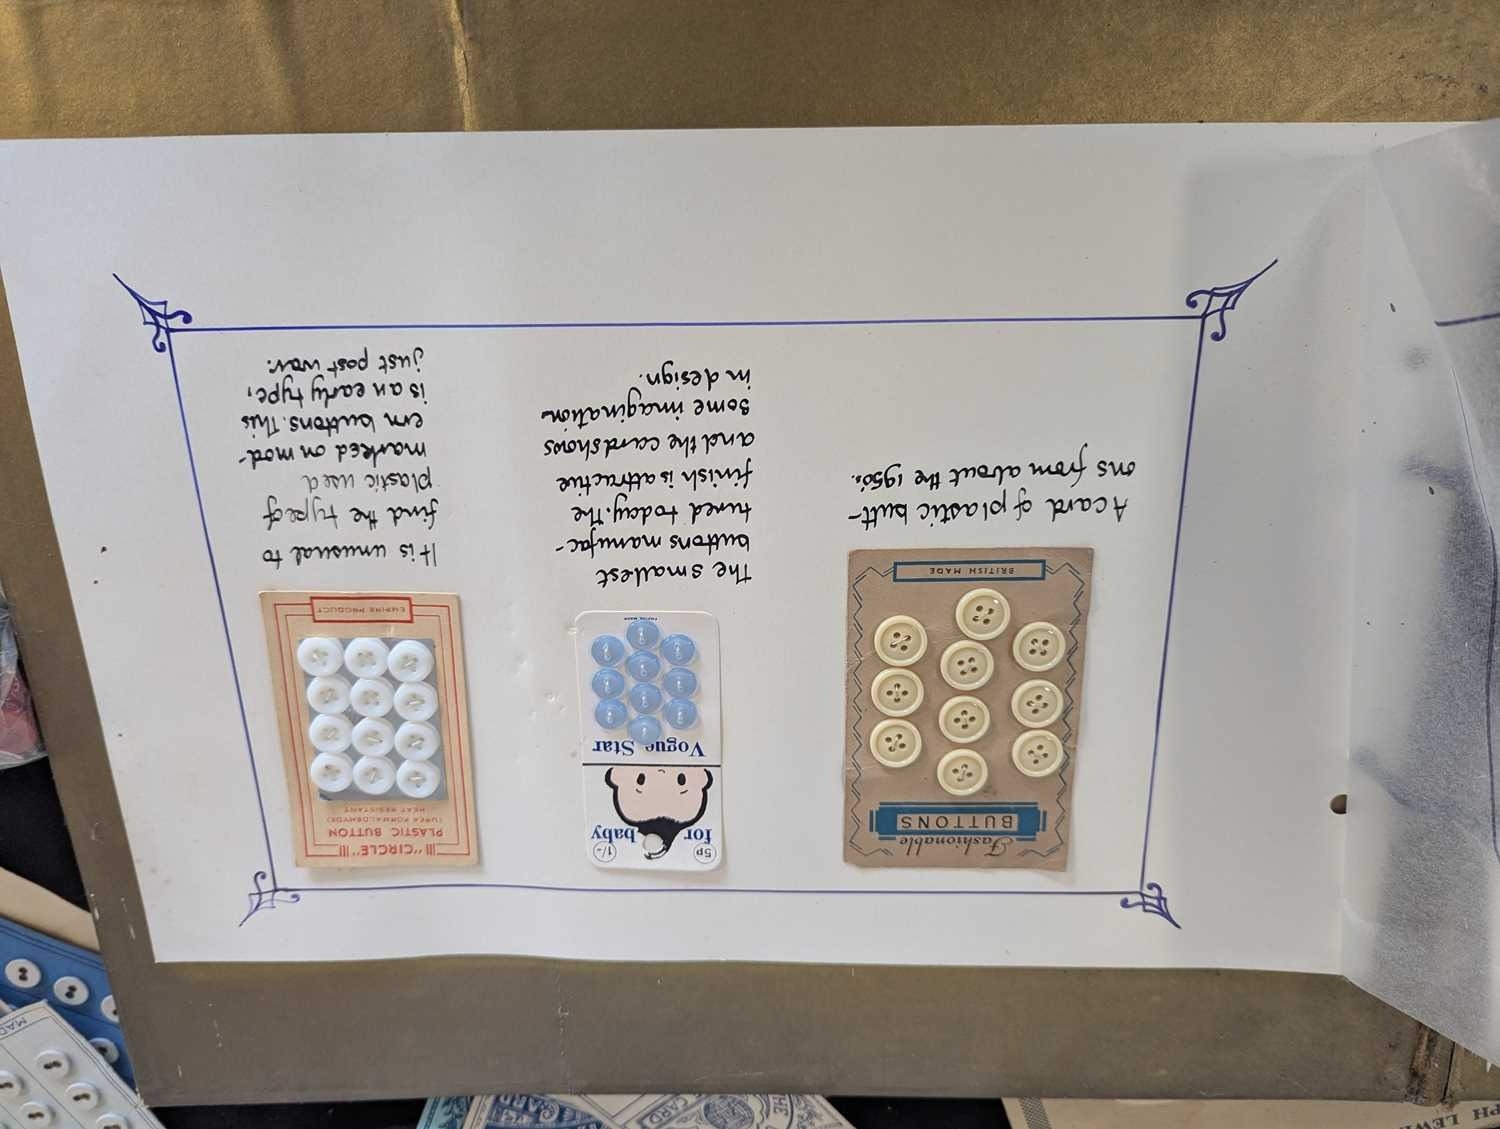 Fashionable
BUTTONS
BRITISH MADE
A card of plastic butt-
ons from about the 1950s.
5p
1/-
for baby
Vogue Star
The smallest
buttons manufac-
tured today. The
finish is attractive
and the card shows
some imagination
in design.
"CIRCLE"
PLASTIC BUTTON
(UREA FORMALDEHYDE)
HEAT RESISTANT
EMPIRE PRODUCT
It is unusual to
find the type of
plastic used
marked on mod-
ern buttons. This
is an early type,
just post war.
PH LEWI
CARD
CARD
THE
MAD